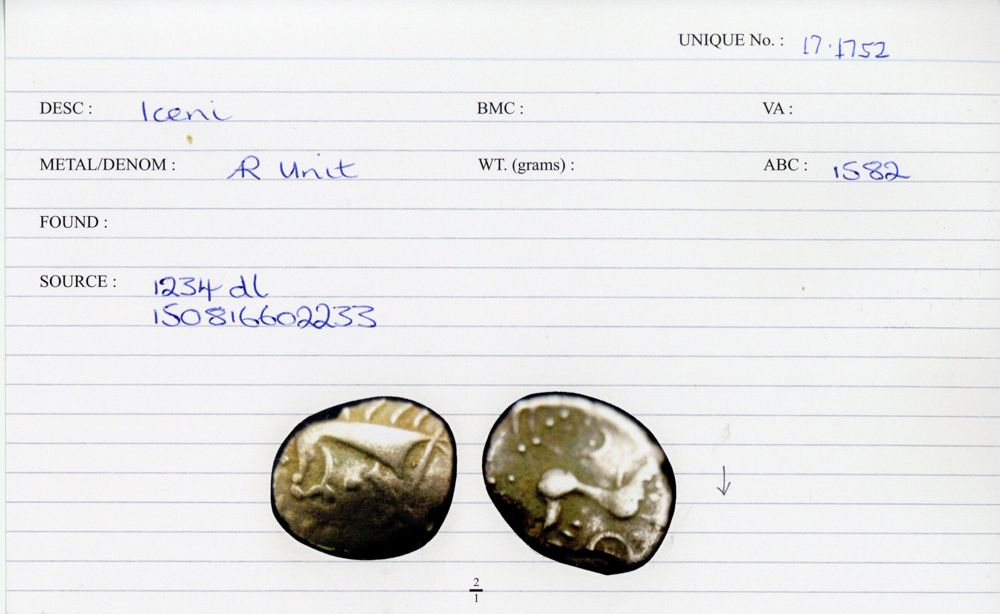 UNIQUE No. : 17.1752
DESC : Iceni BMC : VA :
METAL/DENOM : AR Unit WT. (grams) : ABC : 1582
FOUND :
SOURCE : 1234 dl
150816602233
2
1